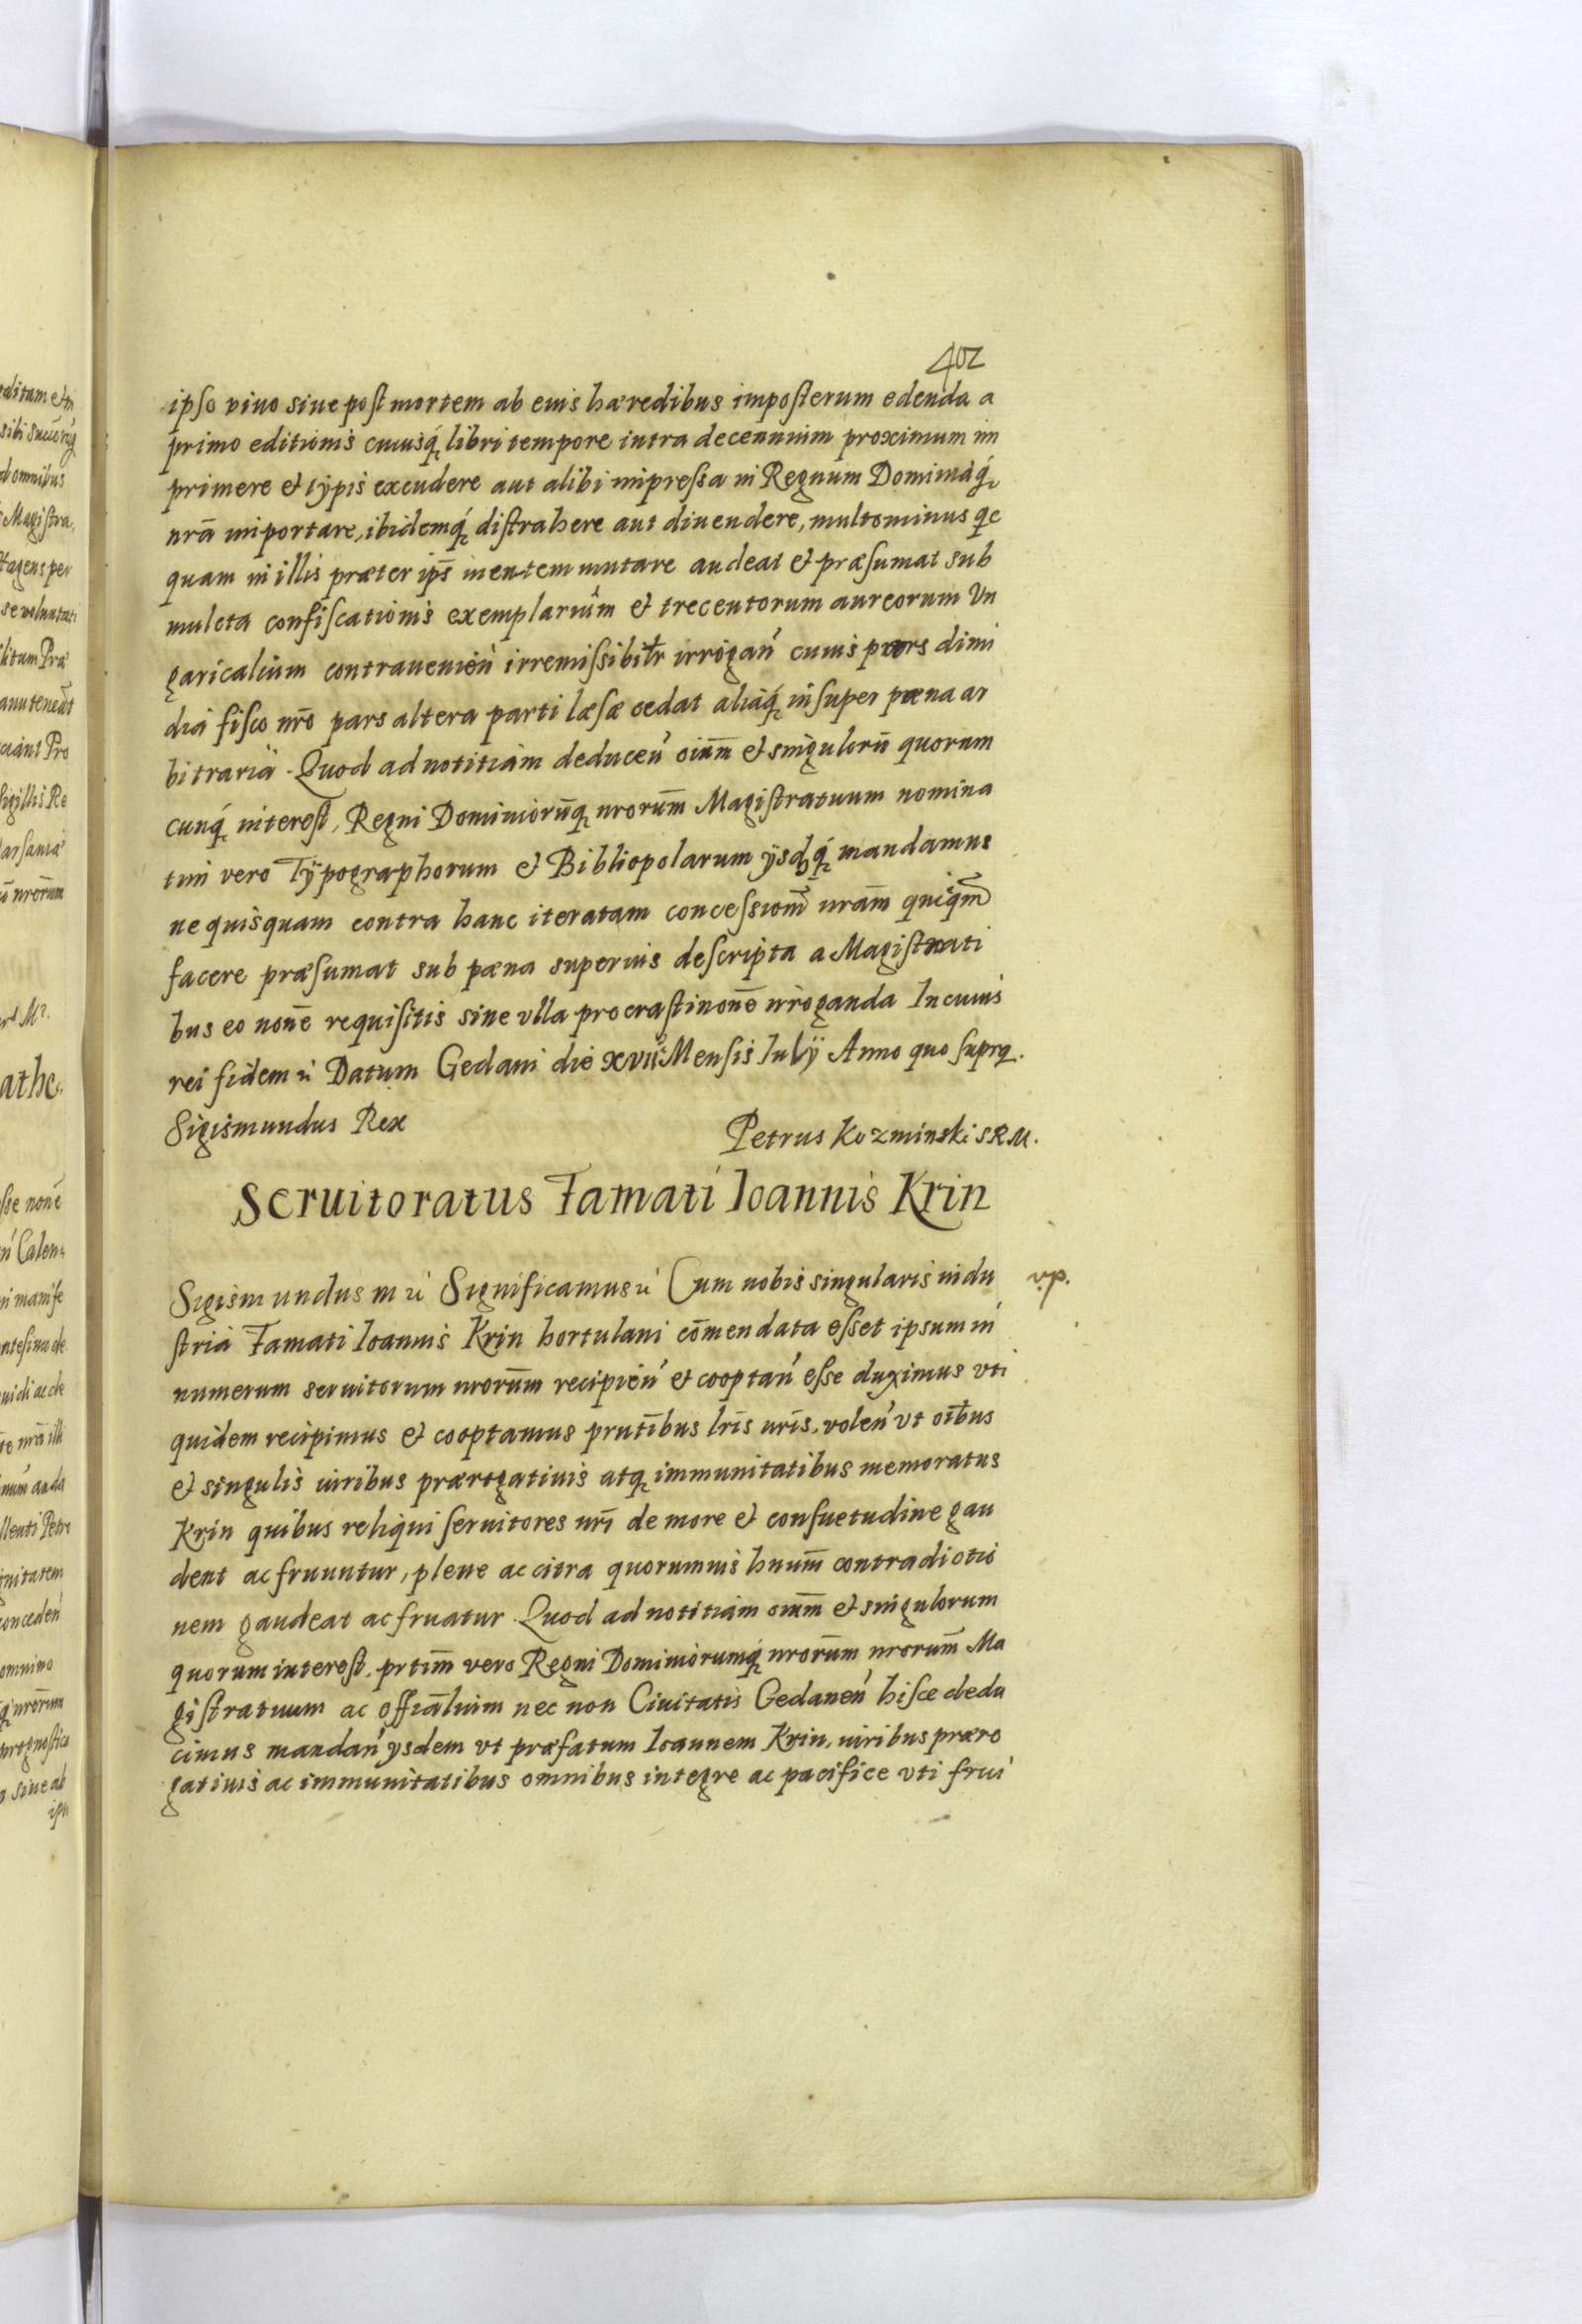 402
ipso viuo siue post mortem ab euis hæredibus imposterum edenda a
primo editionis cuiusq́; libri tempore intra decennium proximum im
primere et typis excudere aut alibi impressa in Regnum Dominiaq́;
nrā importare, ibidemq́; distrahere aut diuendere, multominus qc
quam in illis præter ips̄ mentem mutare audeat et præsumat sub
mulcta confiscationis exemplarium et trecentorum aureorum Vn
garicalium contrauenień irremissibilr̄ irrogań cuius pars dimi
dia fisco nr̄o pars altera parti læsæ cedat aliaq́; insuper pæna ar
bitraria. Quod ad notitiam deduceń oium̄ et singulorū quorum
cunq́; interest, Regni Dominiorūq; nrorūm Magistratuum nomina
tim vero Typographorum et Bibliopolarum ysdq́; mandamus
ne quisquam contra hanc iteratam concessiom̄ nram̄ quicqm̄
facere præsumat sub pæna superius descripta a Magistrati
bus eo nonē requisitis sine vlla procrastinonē irroganda In cuius
rei fidem ń Datum Gedani die xvii Mensis Iulÿ Anno quo supra.
Sigismundus Rex
Petrus Kozminski S R M.
Seruitoratus Famati Ioannis Krin
Sigismundus m ń Significamus ń Cum nobis singularis indu
vp.
stria Famati Ioannis Krin hortulani cōmendata esset ipsum in
numerum seruitorum nrorūm recipień et cooptań esse duximus vti
quidem recipimus et cooptamus prntībus lrīs nrīs, voleń vt oībus
et singulis iuribus prærogatiuis atq; immunitatibus memoratus
Krin quibus reliqui seruitores nrī de more et consuetudine gau
dent ac fruuntur, plene ac citra quorumuis hnum̄ contradictio
nem gaudeat ac fruatur. Quod ad notitiam omm̄ et singulorum
quorum interest, prtim̄ vero Regni Dominiorumq́; nrorūm nrorūm Ma
gistratuum ac offiālium nec non Ciuitatis Gedaneń hisce dedu
cimus mandań ysdem vt præfatum Ioannem Krin, iuribus præro
gatiuis ac immunitatibus omnibus integre ac pacifice vti frui